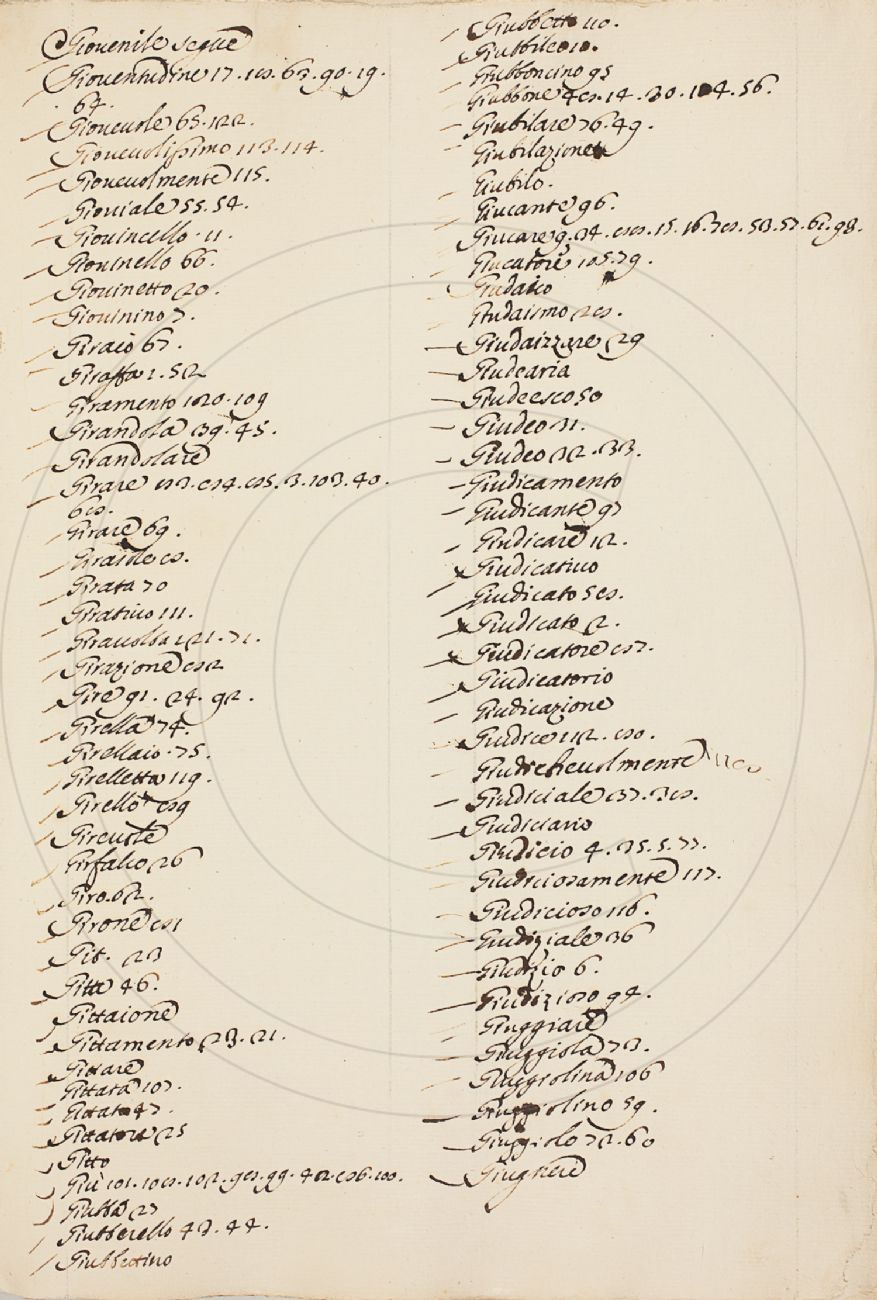 Giovenile segue
Gioventudine 17. 63. 90. 19.
64.
Giovevole 65. 122.
Giovevolissimo 113. 114.
Giovevolmente 115.
Gioviale 55. 54.
Giovincello. 11.
Giovinello 66.
Giovinetto 20.
Giovinino 7.
Giraio 67.
Giraffa 1. 52
Giramento 120. 109
Girandola 39. 45.
Girandolare
Girare 3. 103. 40.
Girare 69.
Girata 70
Girativo 111.
Giravolta 121. 71.
Girazione
Gire 91. 24. 92.
Girella 74.
Girellaio. 75.
Girelletta 119.
Girello
Girevole
Girfalco 26
Giro. 62.
Girone
Git. 23
Gitte 46.
Gittaione
Gittamento 23. 21.
Gittare
Gittata 107.
Gittato 47.
Gittatore 25
Gitto
Giù 101. 99. 100.
Giubba 27
Giubberello 43. 44.
Giubbettino
Giubbetto 110.
Giubbileo 10.
Giubboncino 95
Giubbone 14. 30. 104. 56.
Giubilare 76. 49.
Giubilazione
Giubilo.
Giucante 96.
Giucare 9. 34. 15. 16. 53. 57. 61. 98.
Giucatore 105. 79.
Giudaico
Giudaismo
Giudaizzare 29
Giudearia
Giudeesco 50
Giudeo 31.
Giudeo 32. 33.
Giudicamento
Giudicante 97
Giudicare 12.
Giudicativo
Giudicato
Giudicato 2.
Giudicatore
Giudicatorio
Giudicazione
Giudice 112.
Giudichevolmente
Giudiciale 37.
Giudiciario
Giudicio 4. 35. 5. 77.
Giudiciosamente 117.
Giudicioso 116.
Giudiziale 36
Giudizio 6.
Giudizioso 94.
Giuggiare
Giuggiola 73.
Giuggiolina 106
Giuggiolino 59.
Giuggiolo 72. 60
Giugnere